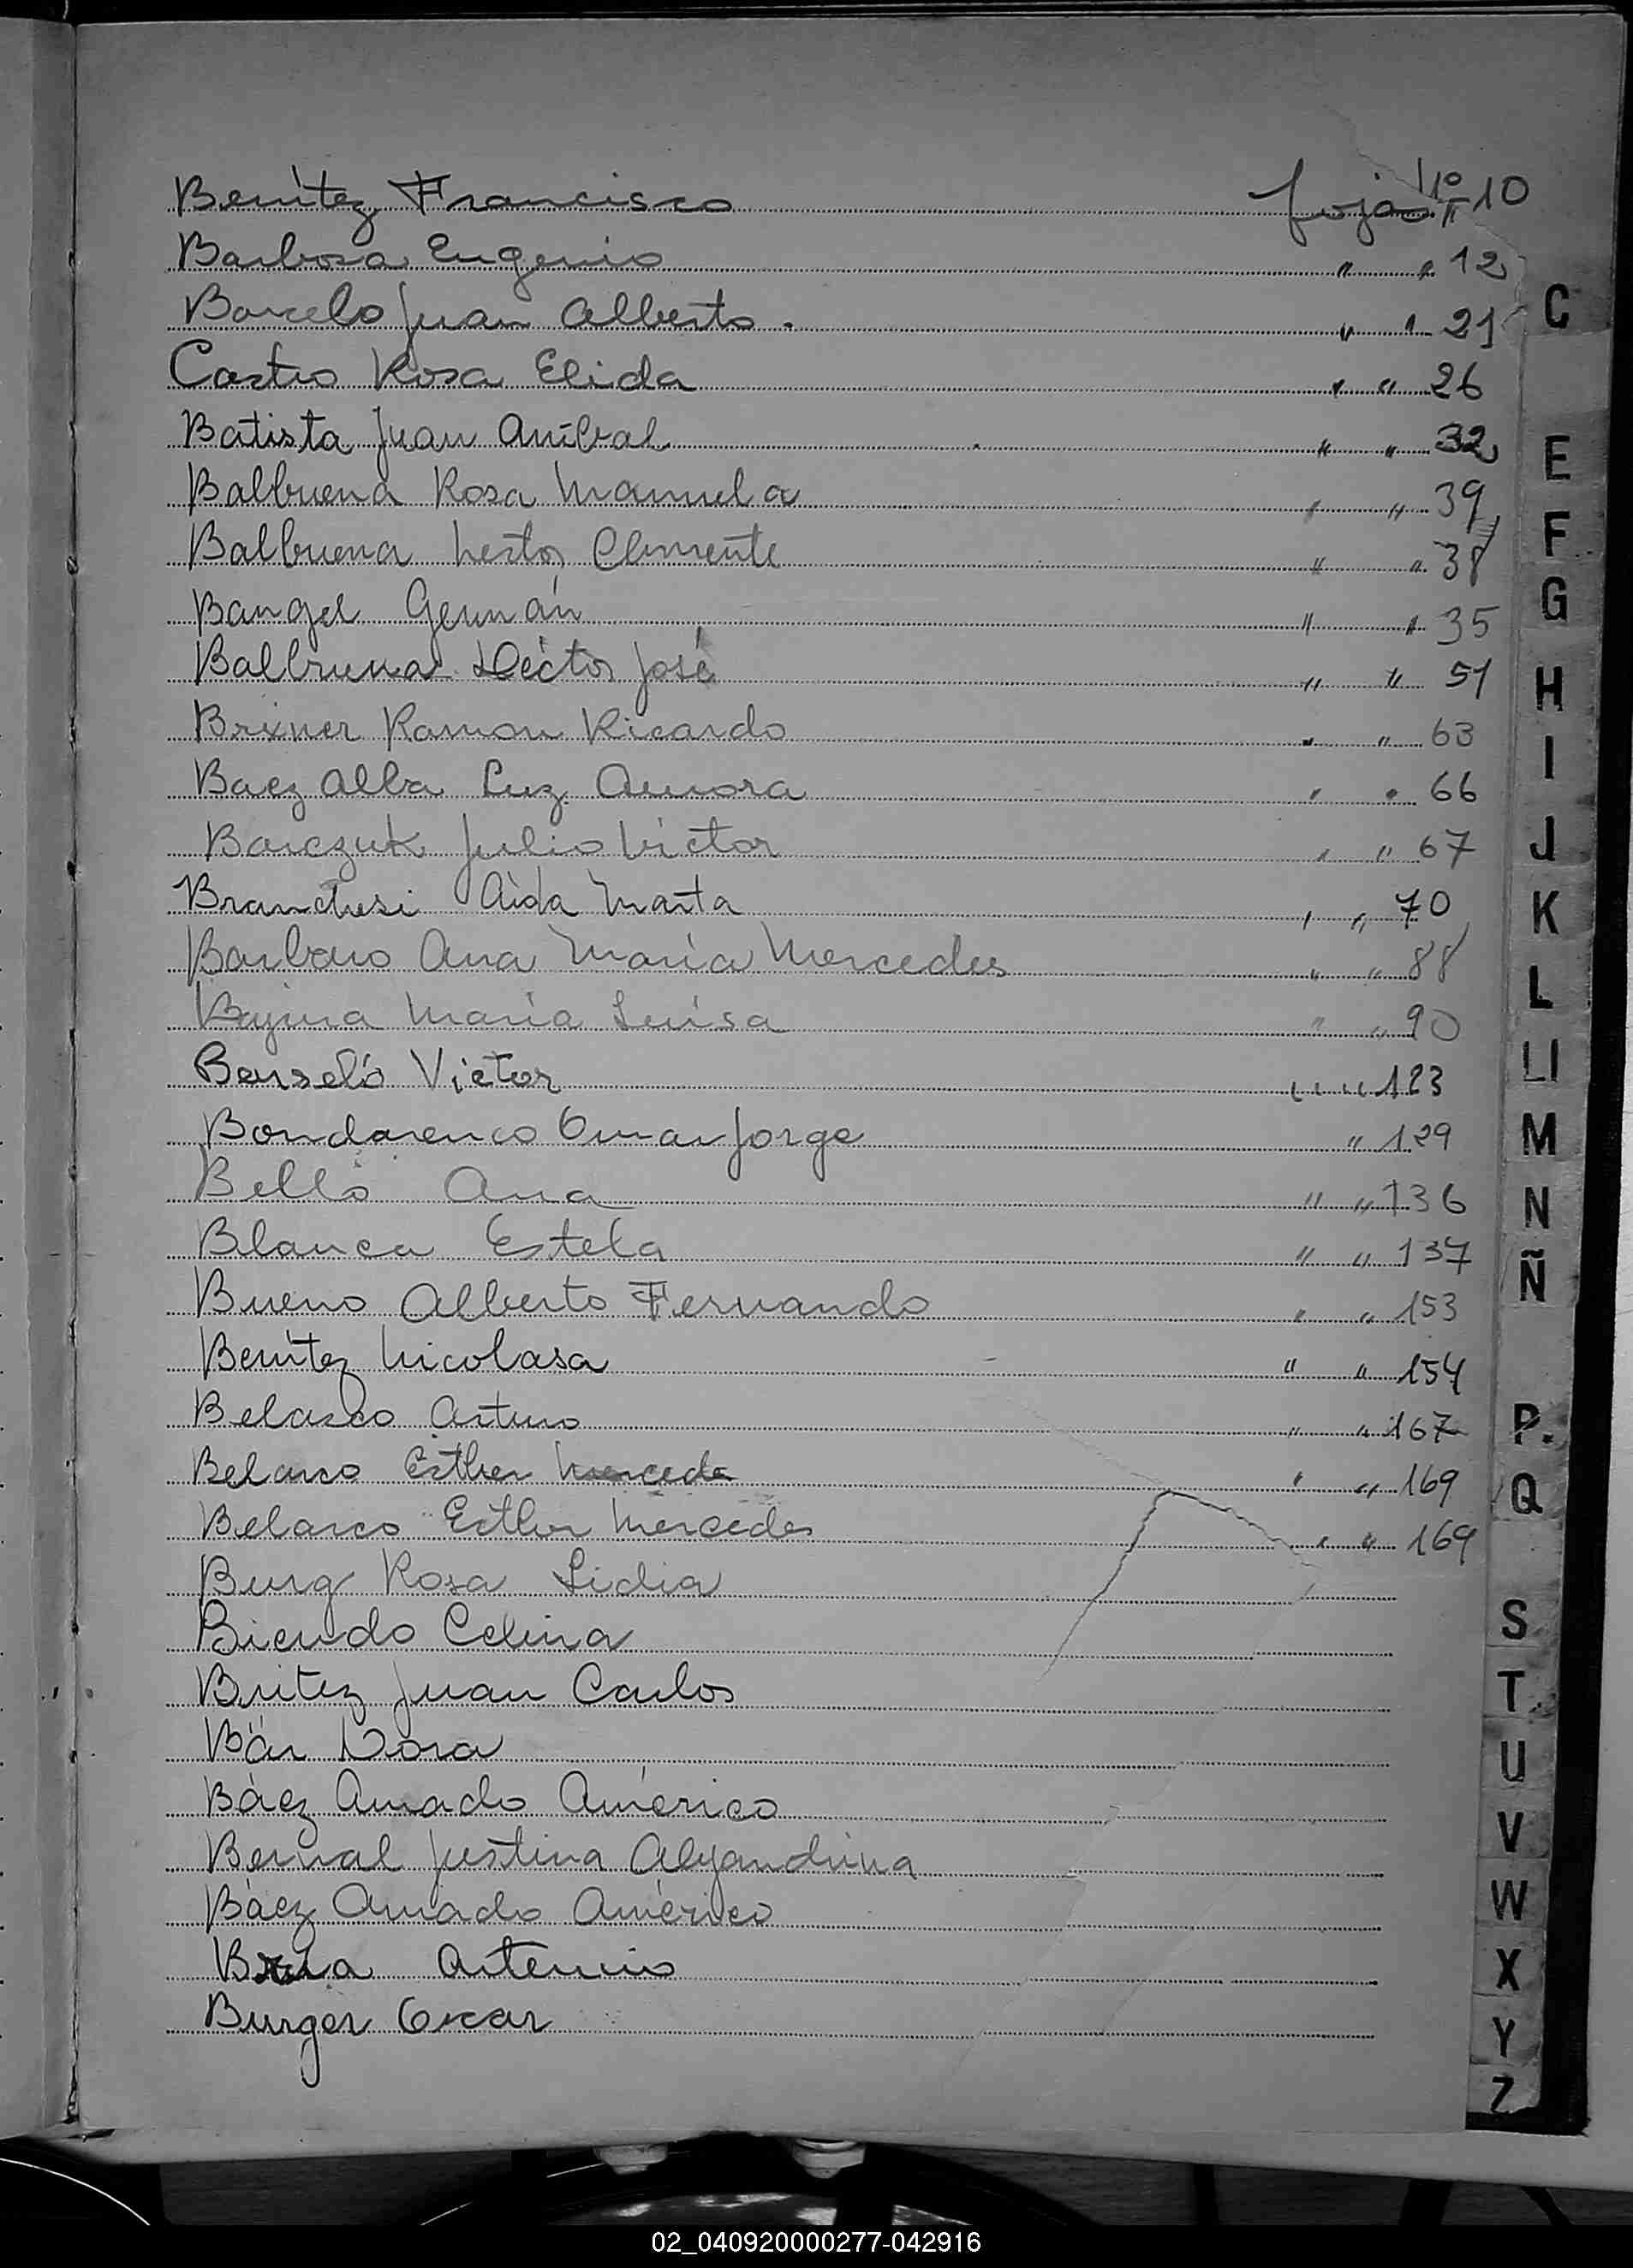 Benítez Francisco foja Nº 10
Barbosa Eugenio " " 12
Barcelo Juan Alberto. " " 21
Castro Rosa Elida " " 26
Batista Juan Aníbal " " 32
Balbuena Rosa Manuela " " 39
Balbuena Nestor Clemente " " 38
Bangel Germán " " 35
Balbuena Héctor José " " 51
Brixner Ramon Ricardo " " 63
Baez Alba Luz Aurora " " 66
Barczuk Julio Victor " " 67
Branchesi Aida Marta " " 70
Barbaro Ana María Mercedes " " 88
María Luisa " " 90
Berseló Victor " " 123
Bondarenco Omar Jorge " 129
Bello Ana " " 136
Blanca Estela " " 137
Bueno Alberto Fernando " " 153
Benítez Nicolasa " " 154
Belasco Arturo " " 167
Belasco Esther Mercede " " 169
Belasco Esther Mercedes " " 169
Burg Rosa Lidia
Celina
Britez Juan Carlos
Bär Dora
Báez Amado Américo
Bernal Justina Alejandrina
Báez Amado Américo
Artemio
Burger Oscar
C
E
F
G
H
I
J
K
L
Ll
M
N
Ñ
P.
Q
S
T
U
V
W
X
Y
Z
02_040920000277-042916